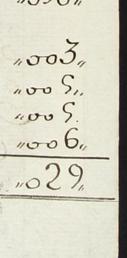 "003"
"005"
"005.
"006"
"029"